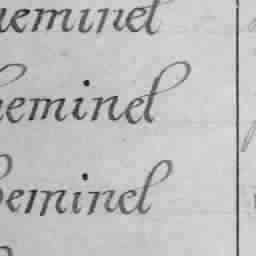 heminel
heminel
heminel